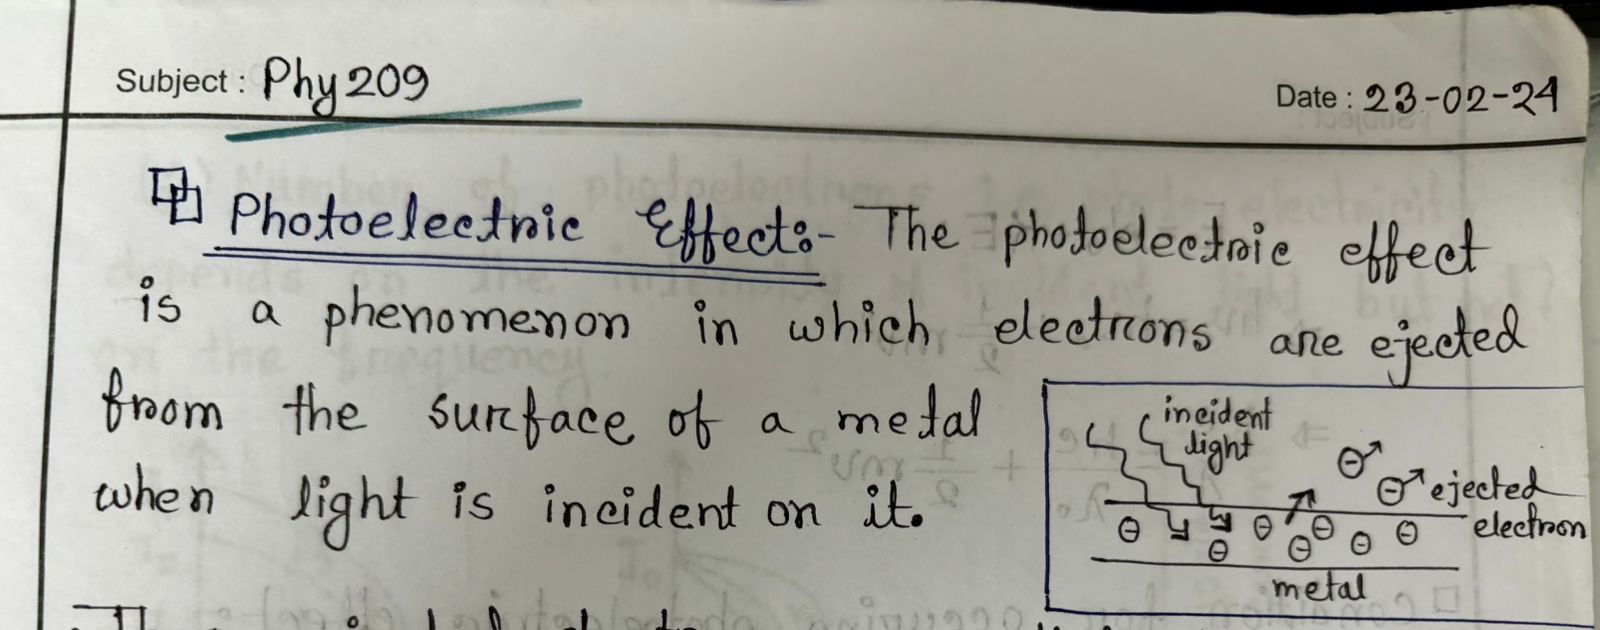 Subject : Phy 209
Date : 23-02-24
Photoelectric Effect:- The photoelectric effect
is a phenomenon in which electrons are ejected
from the surface of a metal
when light is incident on it.
incident
light
ejected
electron
metal